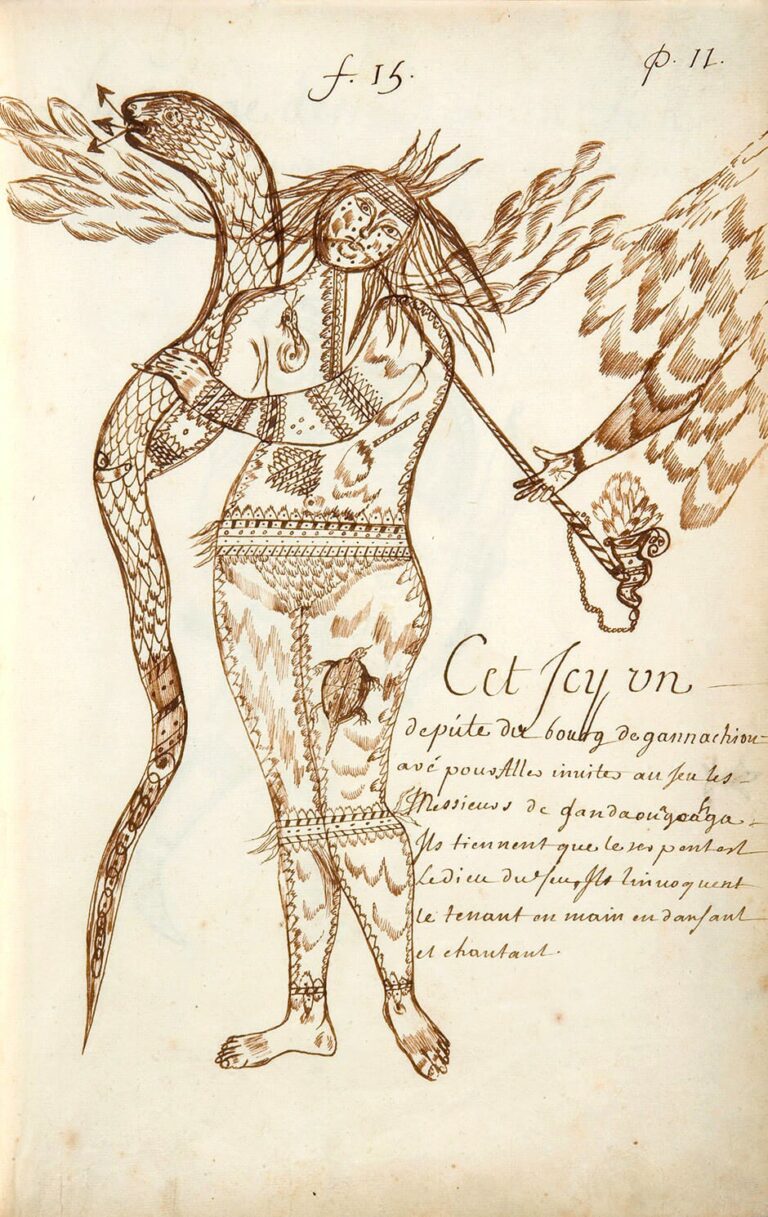 f. 15.
p. 11.
Cet Jcy un
depúte du bourg de gannachiou-
avé pour Aller inuiter au Jeu les
Messieurs de gandaouạgoága.
Ils tiennent que le serpent est
Le dieu du feu Ils Linuoquent
le tenant en main en dansant
et chantant.